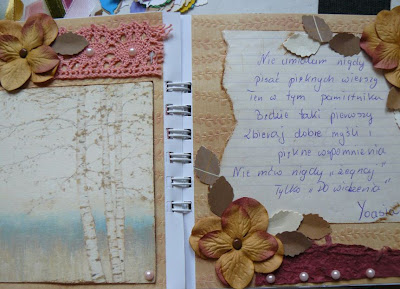 Nie umiałam nigdy
pisać pięknych wierszy
Ten w tym pamiętniku
Będzie taki pierwszy
Zbieraj dobre myśli i
piękne wspomnienia
Nie mów nigdy „żegnaj"
Tylko „Do widzenia"